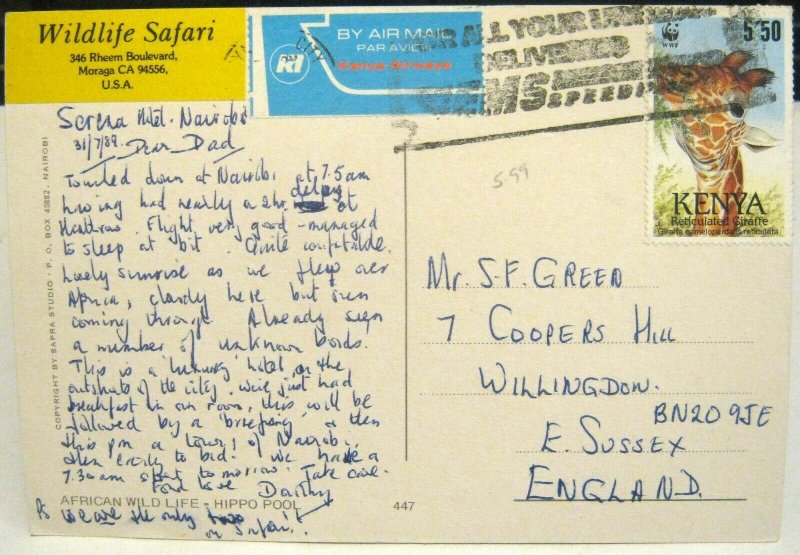 Wildlife Safari
346 Rheem Boulevard,
Moraga CA 94556,
U.S.A.
BY AIR MAIL
PAR AVION
Kenya Airways
ALL YOUR
EMS
SPEEDP
WWF
5/50
KENYA
Reticulated Giraffe
Giraffa camelopardalis reticulata
599
Serena Hotel. Nairobi
31/7/89 Dear Dad
Touched down at Nairobi at 7.5am
having had nearly a 2hr delay at
Heathrow. Flight very good - managed
to sleep at bit. Quite comfortable.
Lovely sunrise as we flew over
Africa, cloudy here but sun
coming through. Already seen
a number of unknown birds.
This is a 'luxury' hotel on the
outskirts of the city. We've just had
breakfast in our room, this will be
followed by a 'briefing' & then
this pm a tour of Nairobi,
then early to bed. We have a
7.30am start tomorrow. Take care.
Fond love Dorothy
Ps We are the only
on safari!
AFRICAN WILD LIFE - HIPPO POOL
447
COPYRIGHT BY SAPRA STUDIO - P. O. BOX 45882, NAIROBI
Mr. S.F. GREED
7 COOPERS HILL
WILLINGDON.
BN20 9JE
E. SUSSEX
ENGLAND.